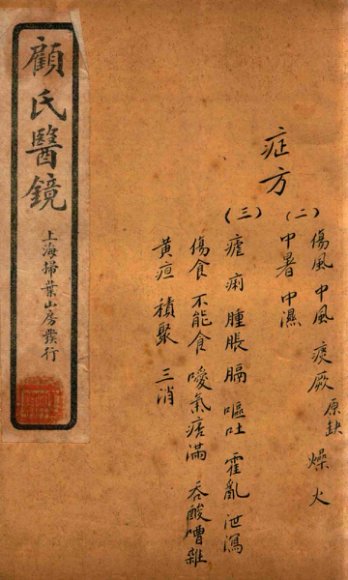 顧氏醫鏡
上海掃葉山房發行
症方
(二)
傷風 中風 痰厥 原缺 燥火
中暑 中濕
(三)
瘧 痢 腫脹 膈 嘔吐 霍亂 泄瀉
傷食 不能食 噯氣痞滿 吞酸嘈雜
黃疸 積聚 三消